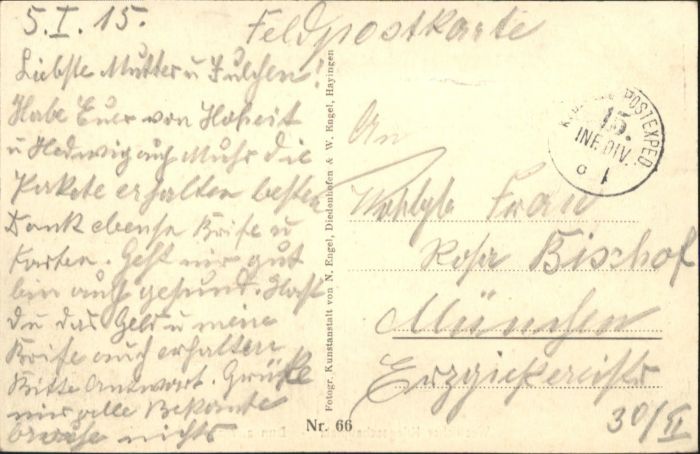 5.I.15.
Feldpostkarte
Liebste Mutter u Julchen!
Habe Euer von Hoheit
u Hedwig auch Muhr die
Pakete erhalten besten
Dank ebenso Briefe u
Karten. Geht mir gut
bin auch gesund. Hast
Du das Geld u meine
Briefe auch erhalten
Bitte Antwort. Grüße
mir alle Bekannte
nichts
Fotogr. Kunstanstalt von N. Engel, Diedenhofen & W. Engel, Hayingen
POSTEXPED.
15.
INF. DIV.
An
Frau
Rosa Bischof
München
Erzgießereistr
30/II
Nr. 66